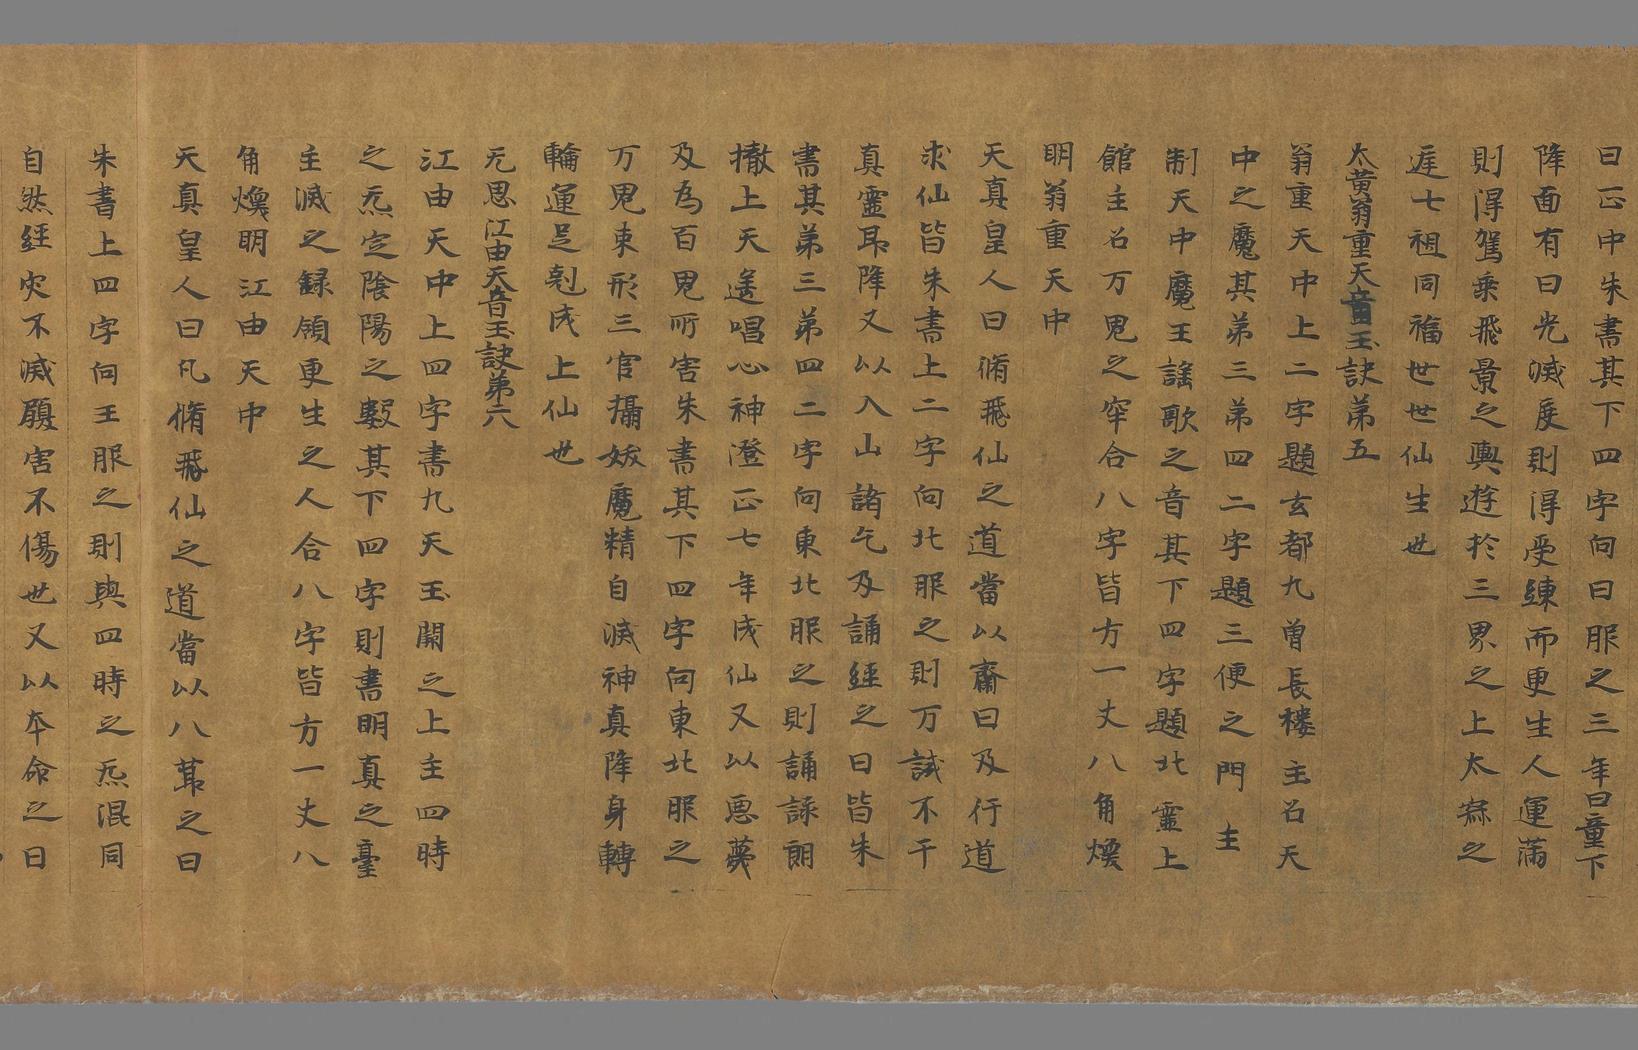 日正中朱書其下四字向日服之三年日童下
降面有日光滅度則得受練而更生人運滿
則得駕乗飛景之輿遊於三界之上太寂之
庭七祖同福世世仙生也
太黄翁重天音玉訣弟五
翁重天中上二字題玄都九曽長樓主召天
中之魔其弟三弟四二字題三便之門主
制天中魔王謠歌之音其下四字題北靈上
館主召万鬼之窂合八字皆方一丈八角煥
明翁重天中
天真皇人曰脩飛仙之道當以齋日及行道
求仙皆朱書上二字向北服之則万試不干
真靈耶降又以入山諸乞及誦經之日皆朱
書其弟三弟四二字向東北服之則誦詠朗
撤上天遙唱心神澄正七年成仙又以惡夢
及為百鬼所害朱書其下四字向東北服之
万鬼束形三官攝妭魔精自滅神真降身轉
輪運足剋成上仙也
无思江由天音玉訣弟六
江由天中上四字書九天玉闕之上主四時
之炁定陰陽之數其下四字則書明真之臺
主滅之録領更生之人合八字皆方一丈八
角煥明江由天中
天真皇人曰凡脩飛仙之道當以八莭之日
朱書上四字向王服之則與四時之炁混同
自然經灾不滅願害不傷也又以夲命之日